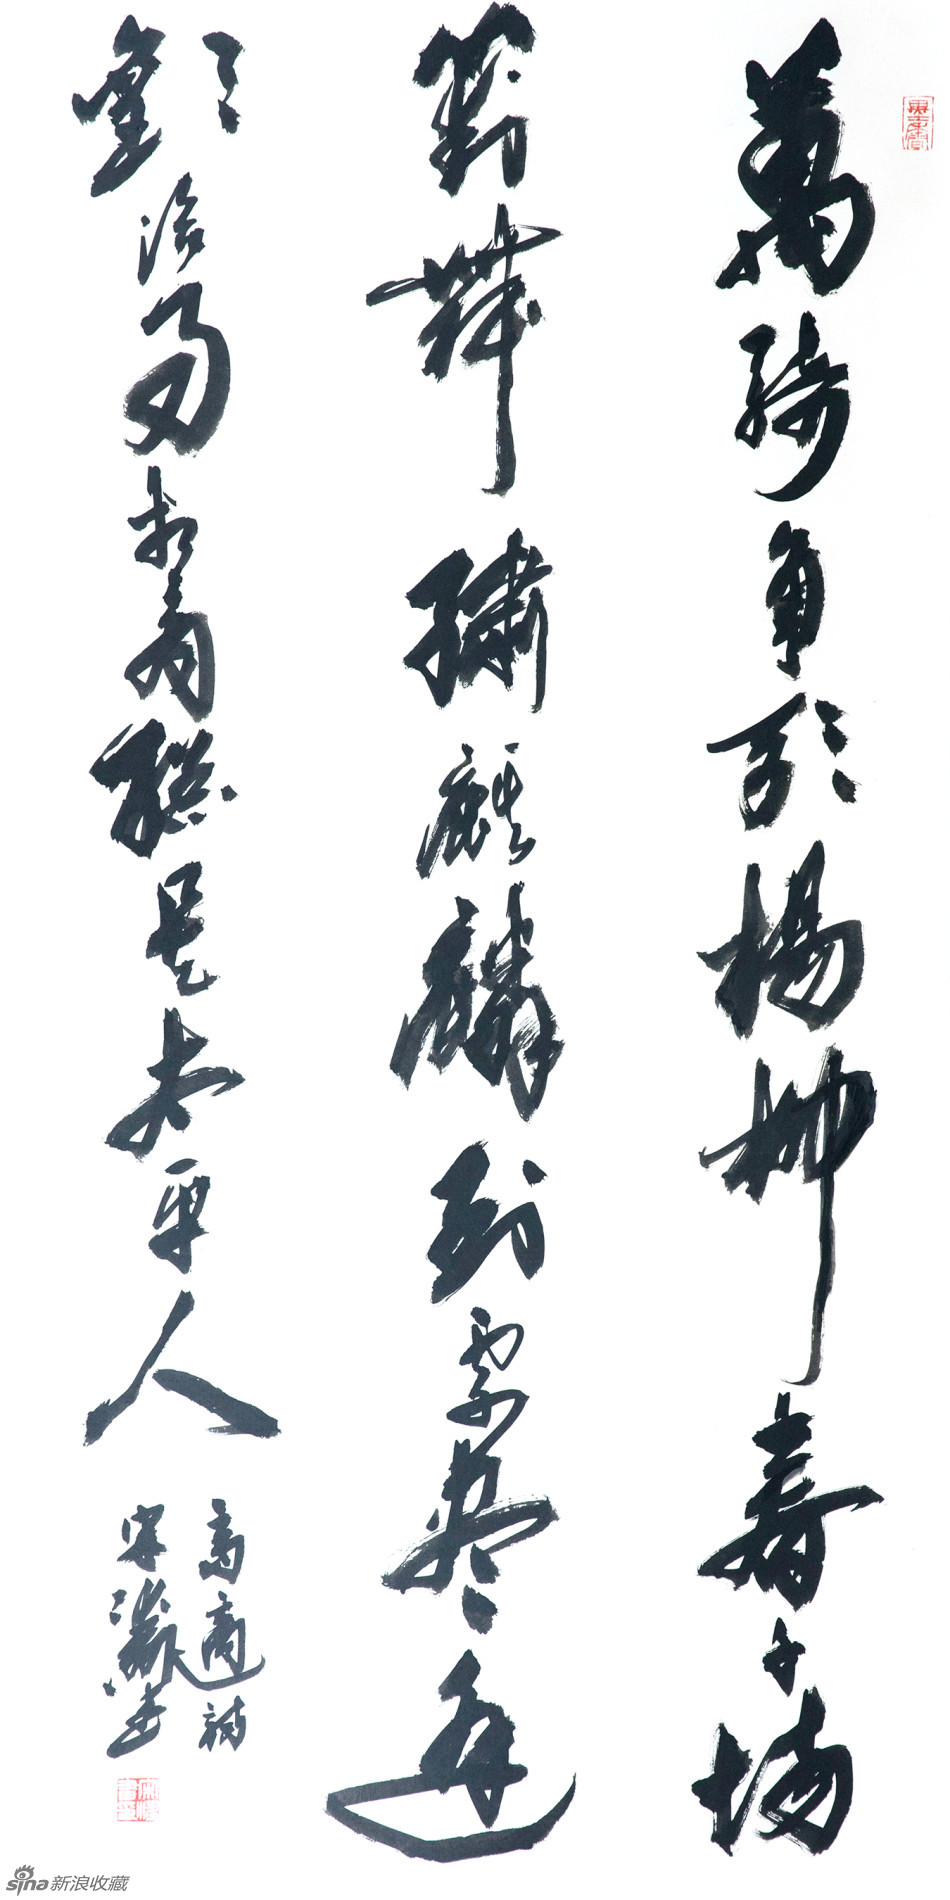 萬騎爭歌楊柳春千場
對舞繡麒麟到處盡逢
歡洽事相看總是太平人
高適詩
宋書
sina新浪收藏